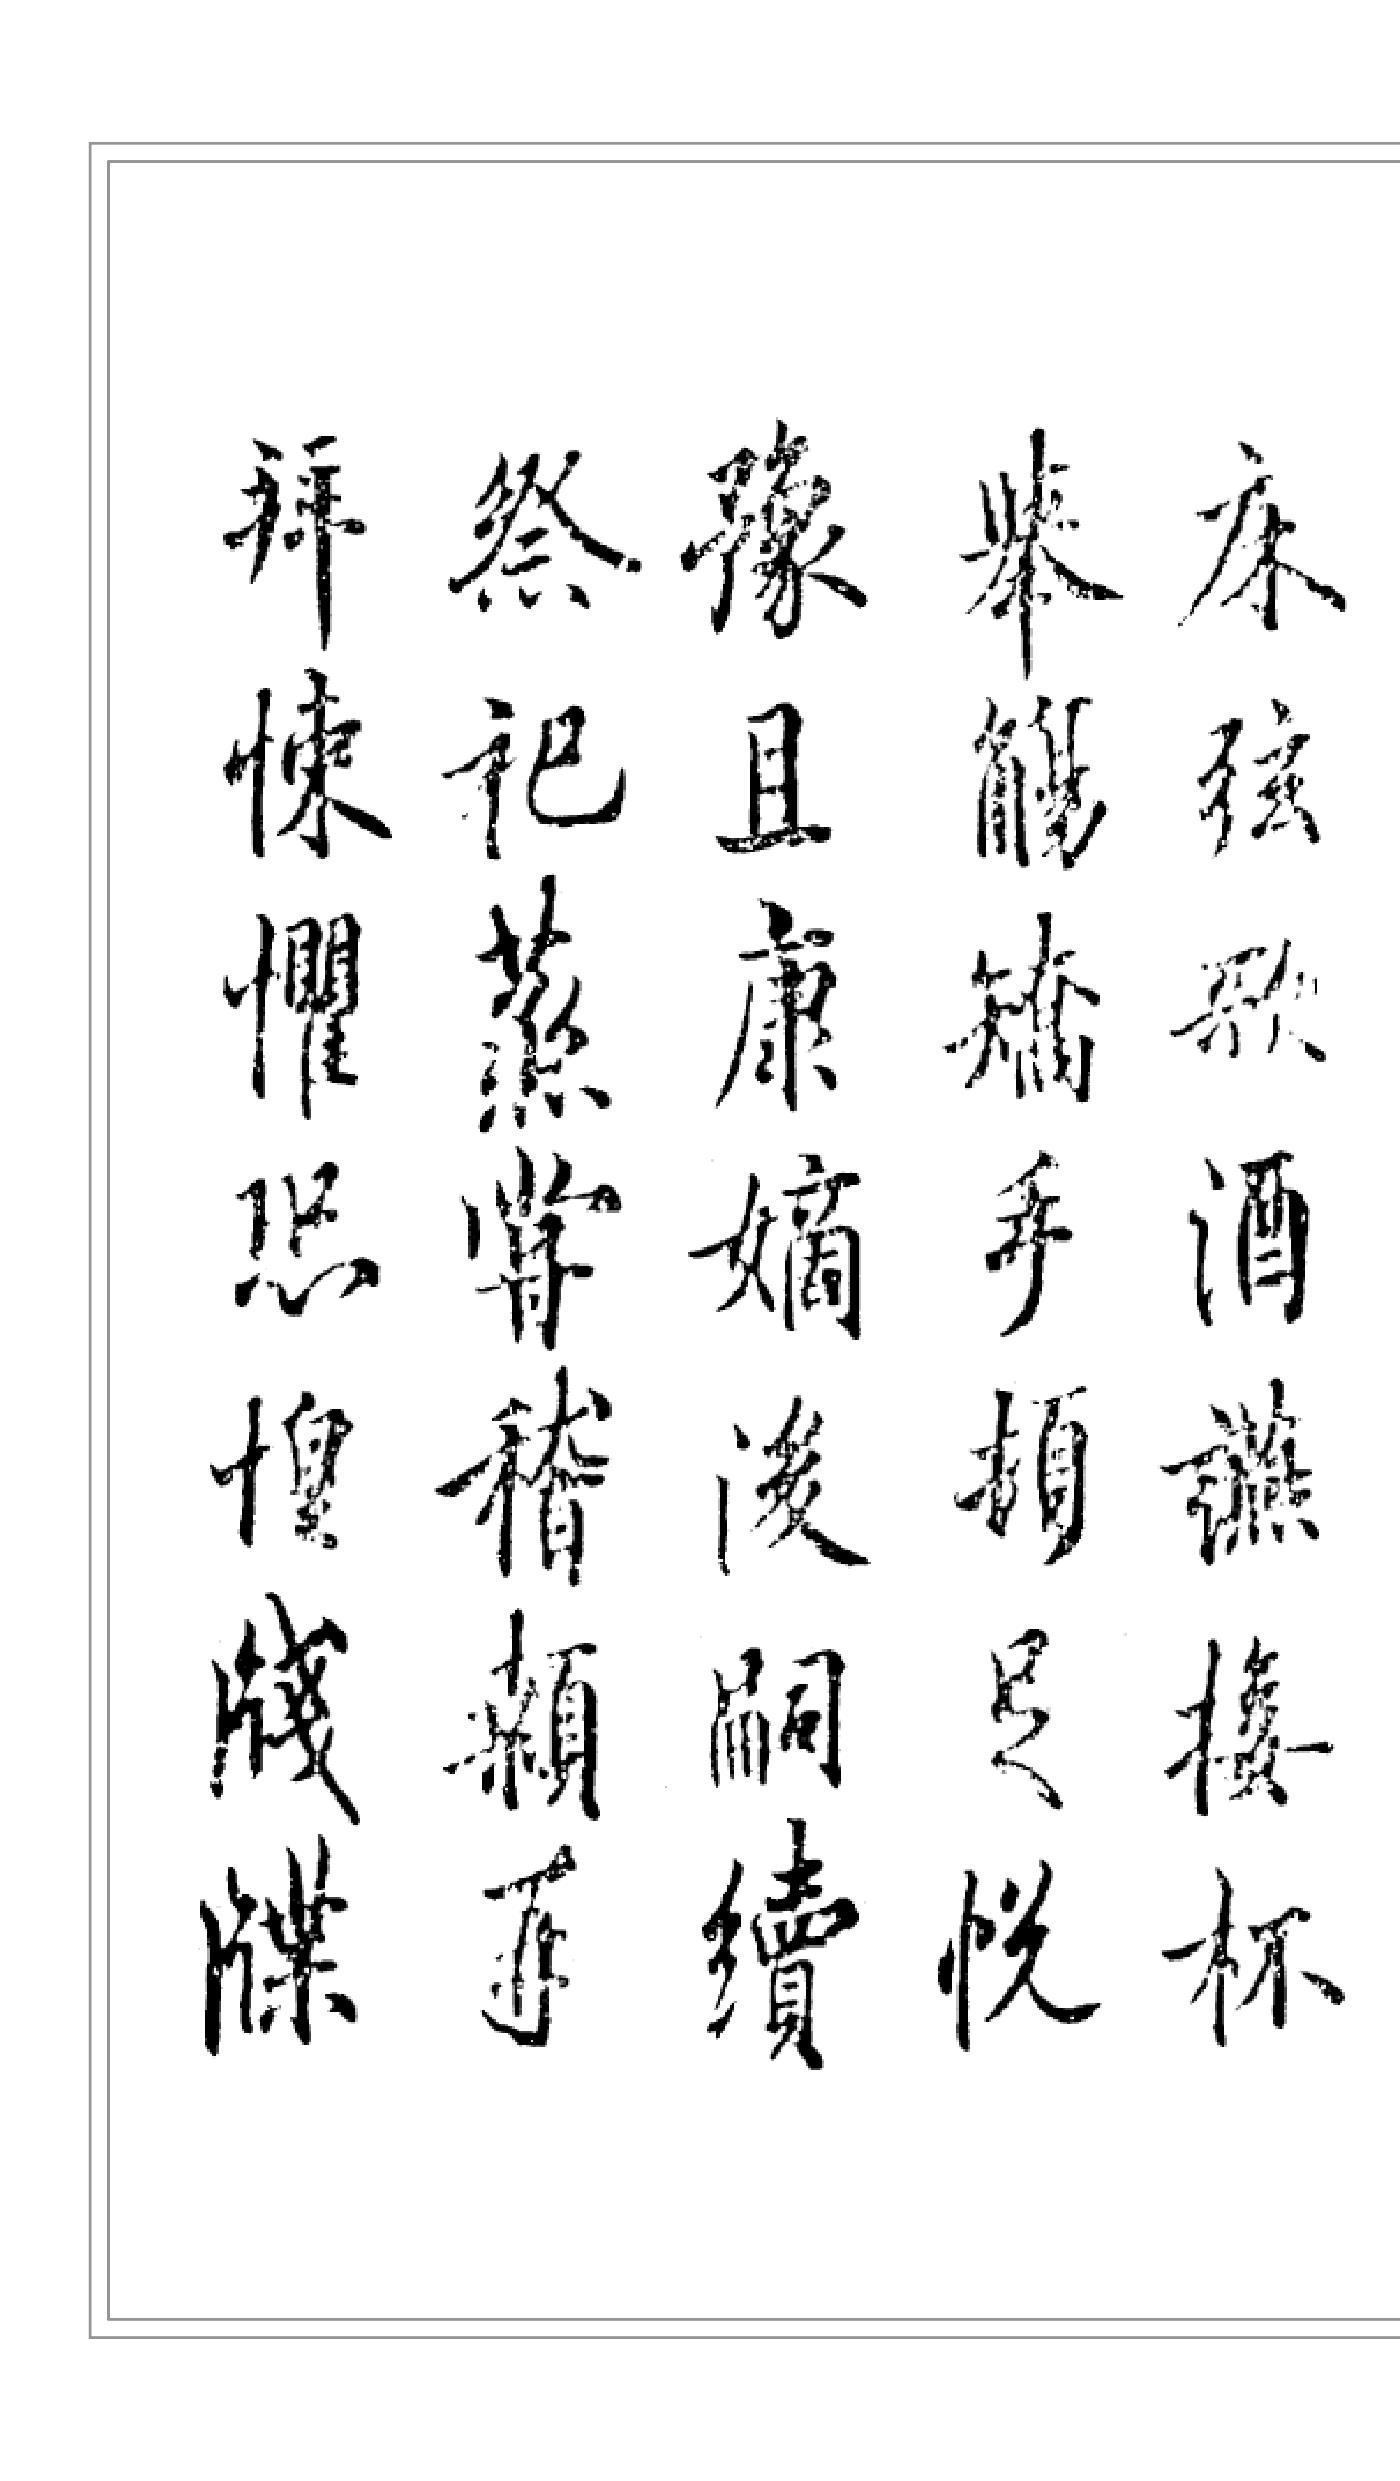 床弦歌酒讌接杯
舉觴矯手頓足悅
豫且康嫡後嗣續
祭祀蒸嘗稽顙再
拜悚懼恐惶牋牒